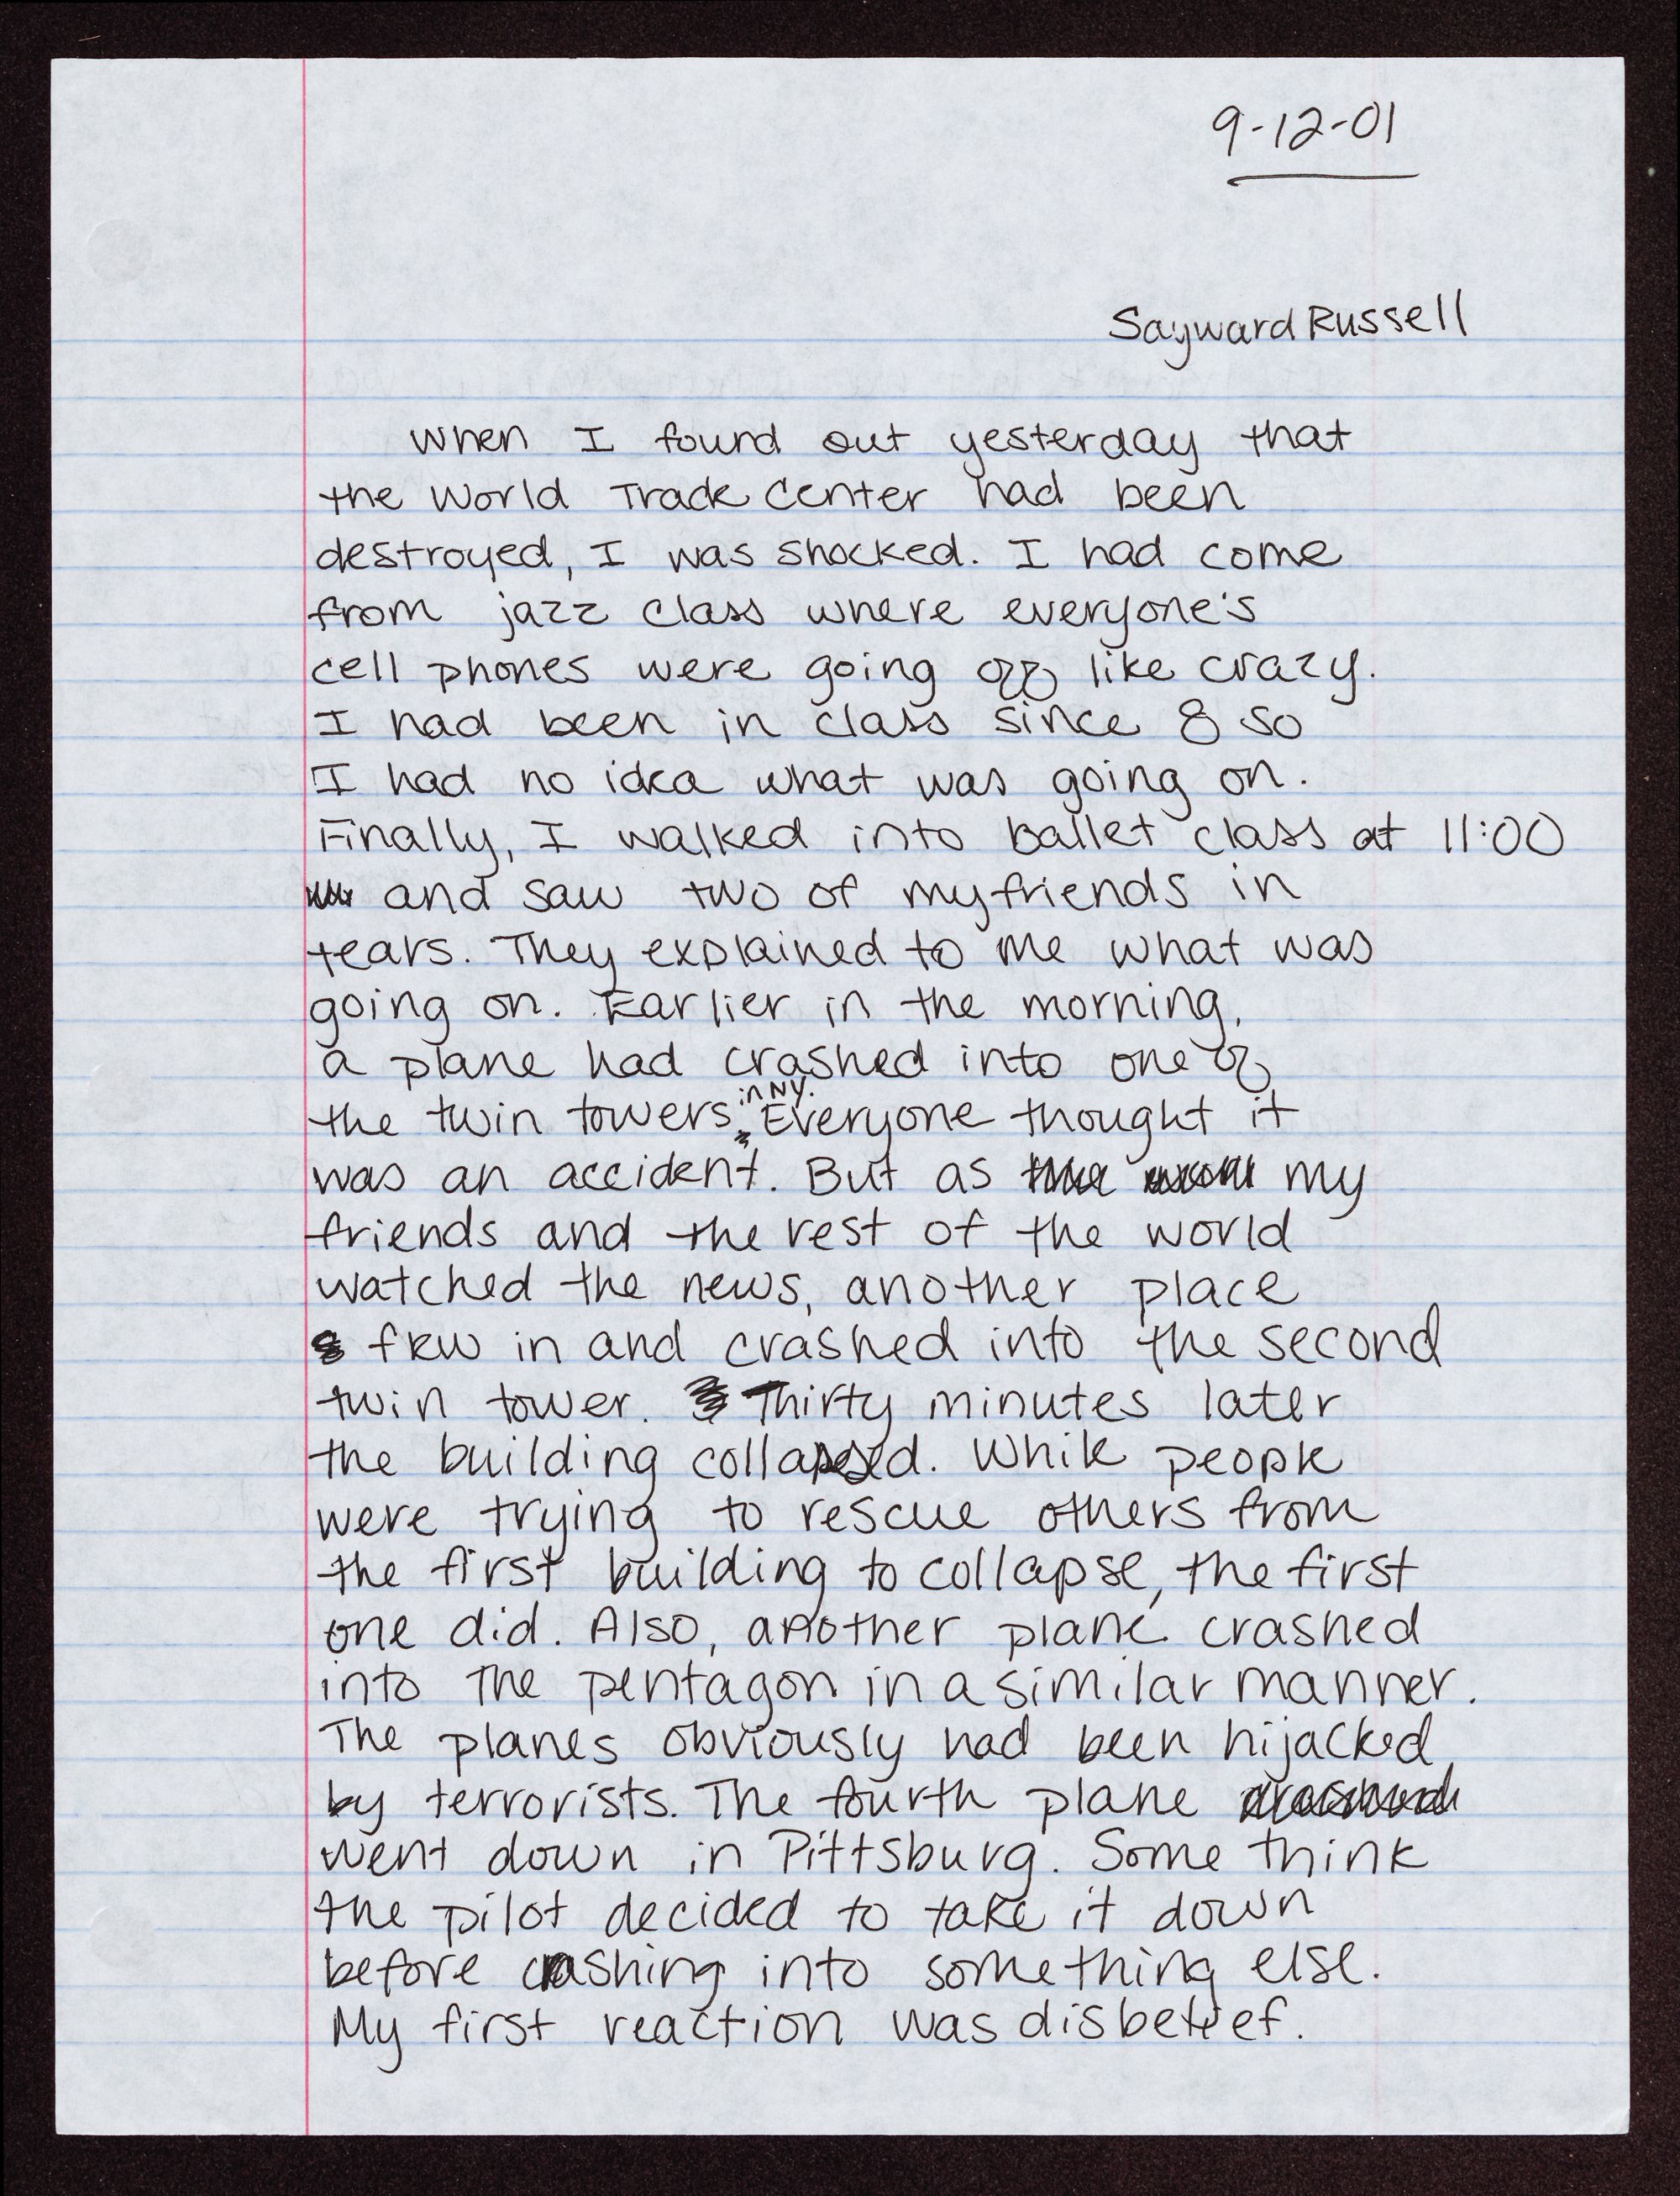 9-12-01
Sayward Russell
When I found out yesterday that
the World Trade Center had been
destroyed, I was shocked. I had come
from jazz class where everyone's
cell phones were going off like crazy.
I had been in class since 8 so
I had no idea what was going on.
Finally, I walked into ballet class at 11:00
and saw two of my friends in
tears. They explained to me what was
going on. Earlier in the morning,
a plane had crashed into one of
the twin towers in NY. Everyone thought it
was an accident. But as my
friends and the rest of the world
watched the news, another place
flew in and crashed into the second
twin tower. Thirty minutes later
the building collapsed. While people
were trying to rescue others from
the first building to collapse, the first
one did. Also, another plane crashed
into the pentagon in a similar manner.
The planes obviously had been hijacked
by terrorists. The fourth plane
went down in Pittsburg. Some think
the pilot decided to take it down
before crashing into something else.
My first reaction was disbelief.